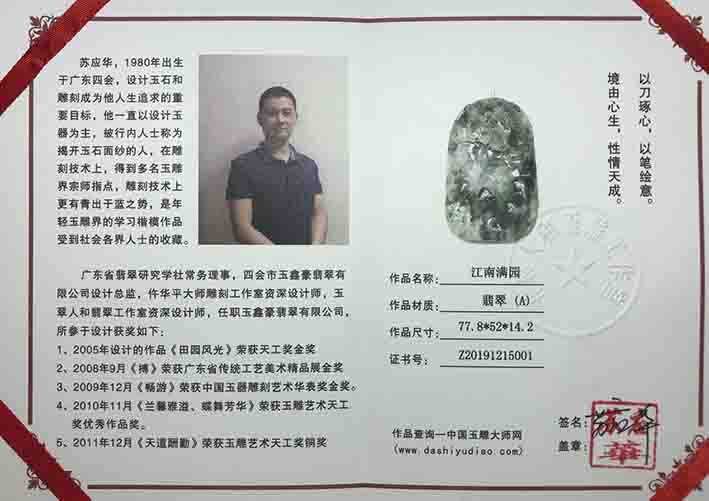 苏应华，1980年出生
于广东四会，设计玉石和
雕刻成为他人生追求的重
要目标，他一直以设计玉
器为主，被行内人士称为
揭开玉石面纱的人，在雕
刻技术上，得到多名玉雕
界宗师指点，雕刻技术上
更有青出于蓝之势，是年
轻玉雕界的学习楷模作品
受到社会各界人士的收藏。
广东省翡翠研究学社常务理事，四会市玉鑫豪翡翠有
限公司设计总监，仵华平大师雕刻工作室资深设计师，玉
翠人和翡翠工作室资深设计师，任职玉鑫豪翡翠有限公司，
所参于设计获奖如下：
1、2005年设计的作品《田园风光》荣获天工奖金奖
2、2008年9月《搏》荣获广东省传统工艺美术精品展金奖
3、2009年12月《畅游》荣获中国玉器雕刻艺术华表奖金奖。
4、2010年11月《兰馨雅溢、蝶舞芳华》荣获玉雕艺术天工
奖优秀作品奖。
5、2011年12月《天道酬勤》荣获玉雕艺术天工奖铜奖
以刀琢心，以笔绘意。
境由心生，性情天成。
作品名称：江南满园
作品材质：翡翠（A）
作品尺寸：77.8*52*14.2
证书号：Z20191215001
作品查询—中国玉雕大师网
(www.dashiyudiao.com)
签名：
盖章：